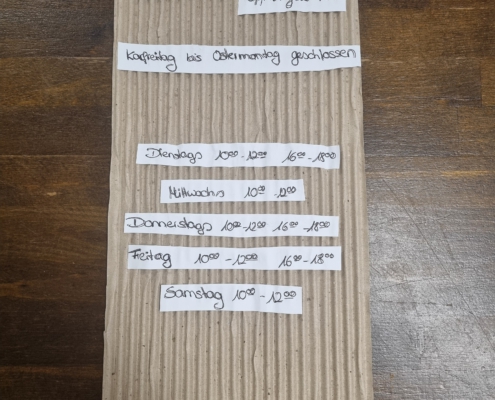 Karfreitag bis Ostermontag geschlossen
Dienstags 10⁰⁰ - 12⁰⁰ 16⁰⁰ - 18⁰⁰
Mittwochs 10⁰⁰ - 12⁰⁰
Donnerstags 10⁰⁰ - 12⁰⁰ 16⁰⁰ - 18⁰⁰
Freitag 10⁰⁰ - 12⁰⁰ 16⁰⁰ - 18⁰⁰
Samstag 10⁰⁰ - 12⁰⁰